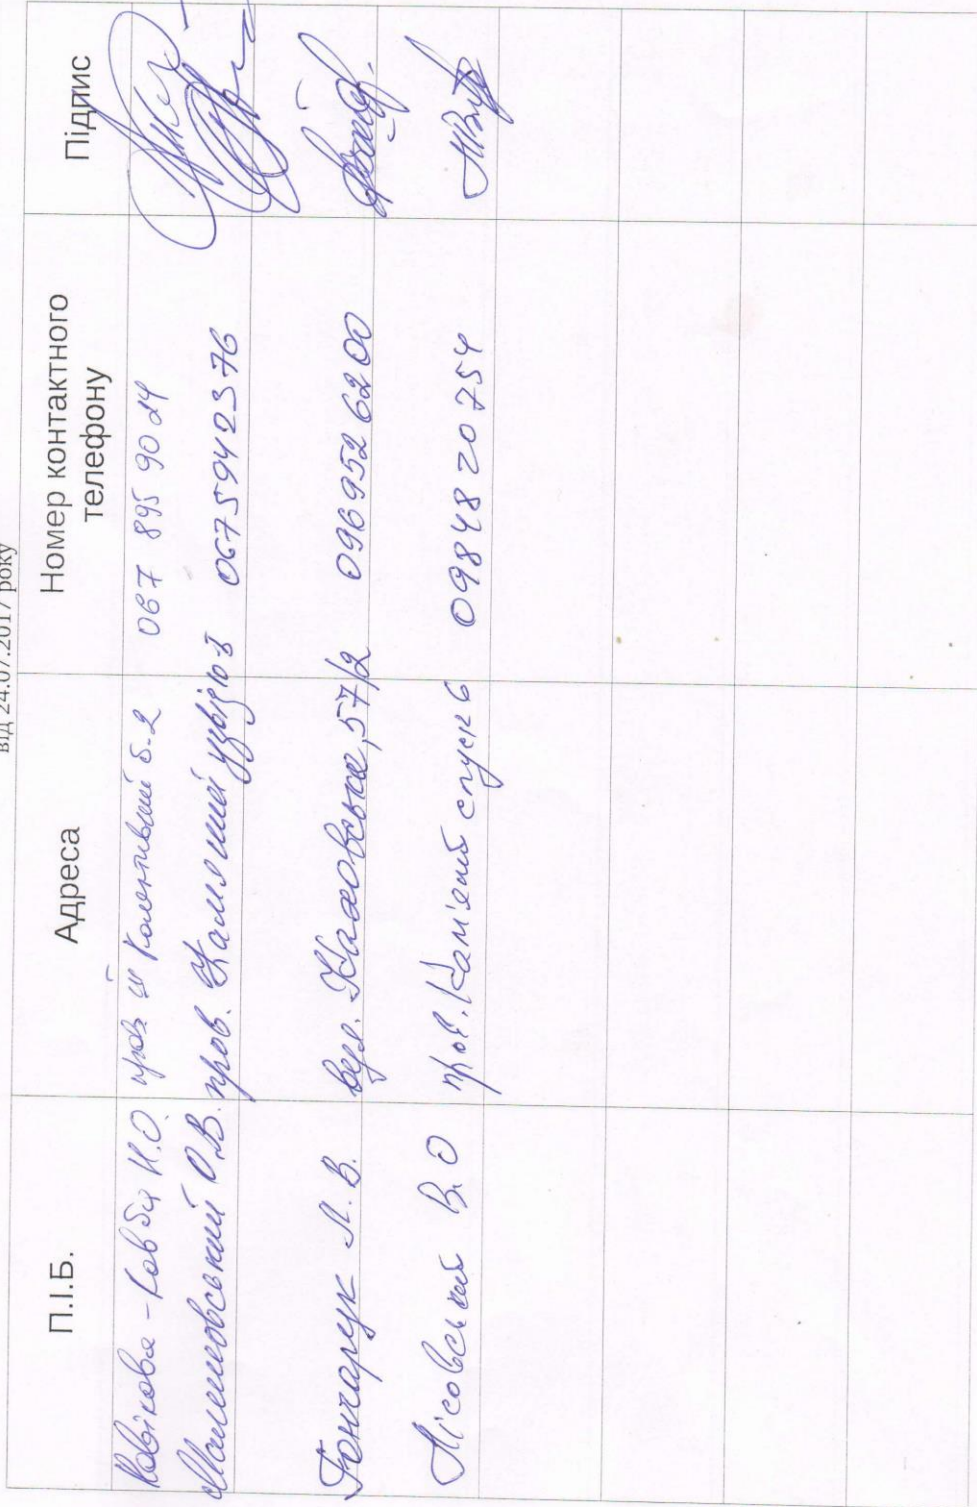 від 24.07.2017 року
П.І.Б. Адреса Номер контактного телефону Підпис
Новікова - Ковба Н.О. 5-2 067 895 90 24
Малешовський О.В. пров. узвіз 0675942376
Гончарук Л.В. вул. Каховська, 57/2 0969526200
Лісовський В.О пров. Кам'яний спуск 6 0984820754